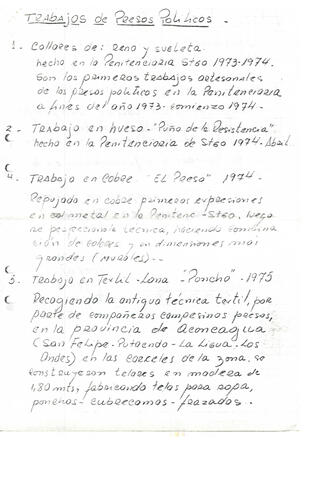 TRABAJOS de PRESOS POLITICOS -
1 - Collares de: Reno y sueleta
hecho en la Penitenciaria Stgo 1973-1974.
Son los primeros trabajos artesanales
de los presos politicos en la Penitenciaria
a fines del año 1973 - comienzo 1974 -
2 - TRabajo en hueso - "Puño de la Resistencia"
hecho en la Penitenciaria de Stgo 1974 - Abril
4. TRabajo en Cobre "EL Preso" 1974 -
Repujado en cobre primeras expresiones
en este metal en la Penitenc - Stgo, luego
se perfecciona técnica, haciendo combina
ción de colores y en dimensiones más
grandes (murales). -
5. TRabajo en Textil - Lana "Poncho" - 1975
Recogiendo la antigua técnica textil, por
parte de compañeros campesinos presos,
en la provincia de Aconcagua
(San Felipe - Putaendo - La Ligua - Los
Andes) en las carceles de la zona. se
construyeron telares en madera de
1,80 mts, fabricando telas para ropa,
ponchos - cubrecamas - frazadas -